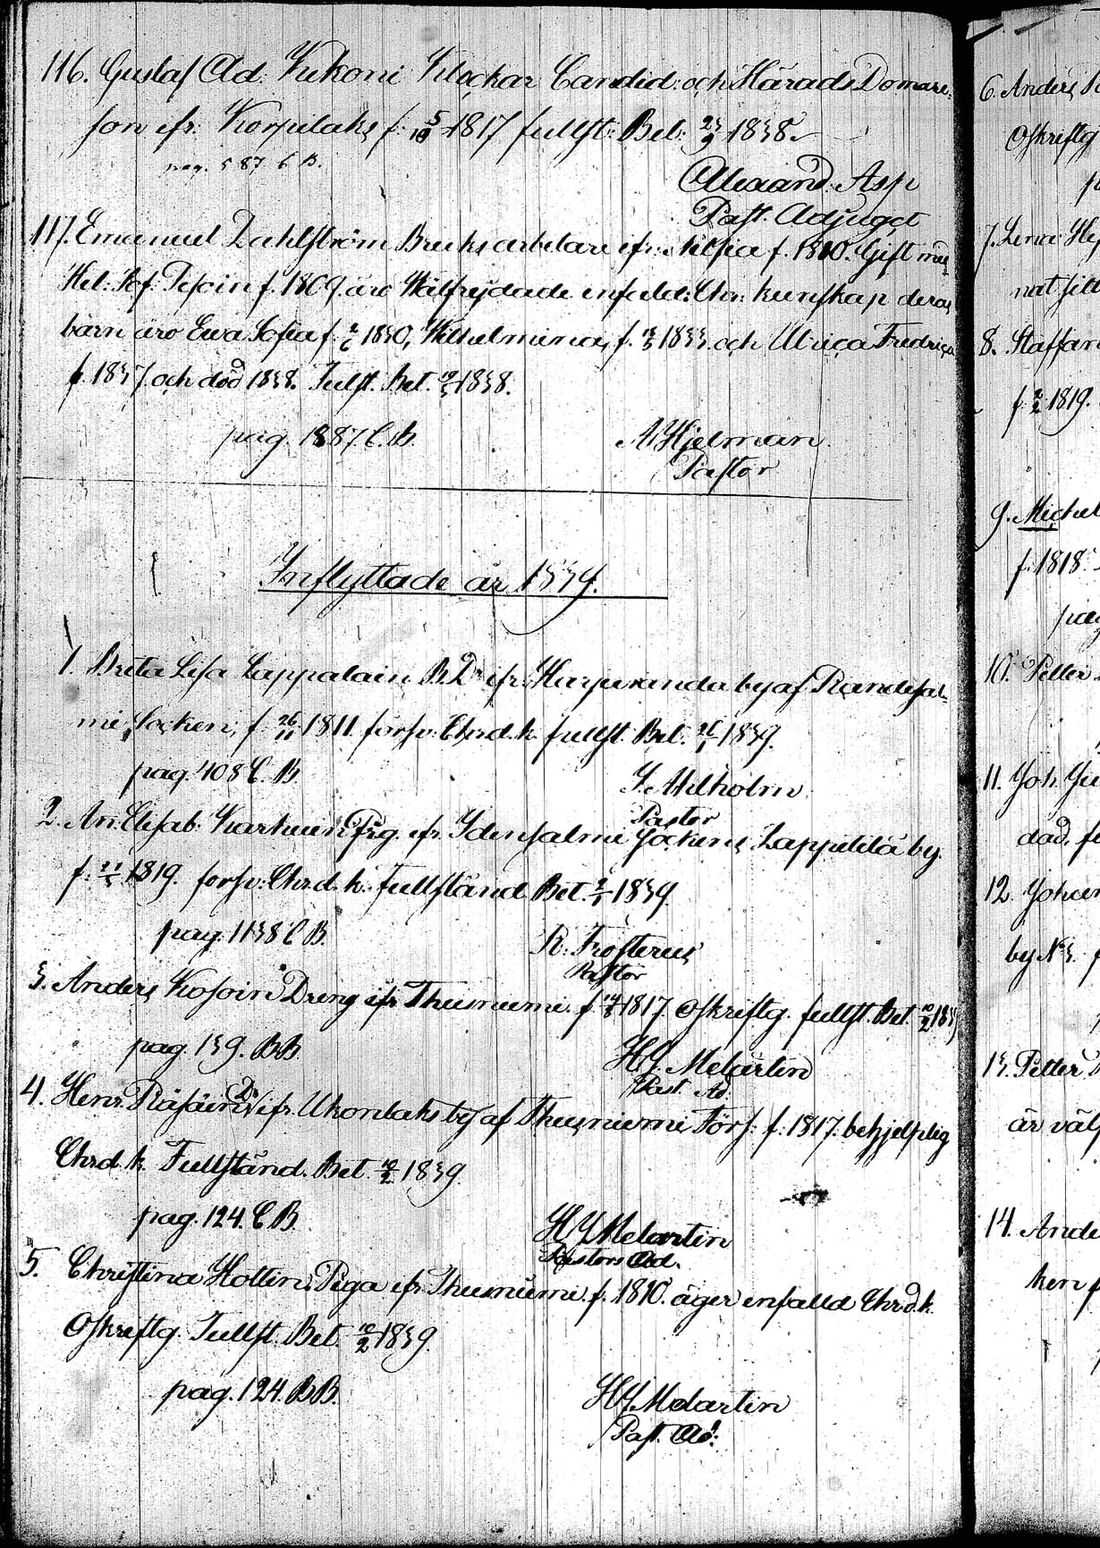 116. Gustaf Ad. Kukoni Klockar Candid: och Härads Domare-
son ifr: Korpilaks f: 5/10 1817 fullst: Bet: 23/9 1838.
pag. 587 C B.
Alexand: Asp
Past. Adjunct
117. Emanuel Dahlström Bruksarbetare ifr: Nilsia f. 1810. Gift med
Hel: Sof: f. 1809. äro Wälfrejdade enfald: Chr: kunskap deras
barn äro Ewa Sofia f. 1830, Wilhelmina, f. 1833. och Ulrica Fredrica
f. 1837 och död 1838. Fullst. Bet. 1838.
pag. 1387 C. B.
A Hjelman.
Pastor
Inflyttade år 1839.
1. Brita Lisa Lappalain B.Dr ifr: by af Randasal-
mi Socken, f. 26/11 1811 försv: Chrd. k. fullst. Bet. 1839.
pag. 408 C. B.
Pastor
2. An: Elisab: Karhuin Pig. ifr Idensalmi Sockens Lappetelä by.
f. 1819. försv: Chrd. k. Fullständ. Bet. 1839
pag. 1138 C B.
R. Frosterus
Pastor
3. Anders Kosoin Dreng ifr Thusniemi. f. 1817. Oskriftg. fullst. Bet. 1839
pag. 139. B B
H. J. Melartin
Past. Ad.
4. Henr. Räsäin Dr ifr: Ukonlaks by af Thusniemi För: f. 1817. behjelplig
Chrd. k. Fullständ. Bet. 1839.
pag. 124. C B.
H J Melartin
Pastors Ad.
5. Christina Hottin Piga ifr: Thusniemi f. 1810. äger enfalld Chr.d.k.
Oskriftg. Fullst. Bet. 1839.
pag. 124. B B.
H J Melartin
Past. Ad:
6. Anders
Oskriftg
7. Lena
8. Staffan
f. 1819.
9. Michel
f. 1818.
pag
10. Petter
11. Joh.
12. Johan
by No 3.
13. Petter
är väl
14. Ande